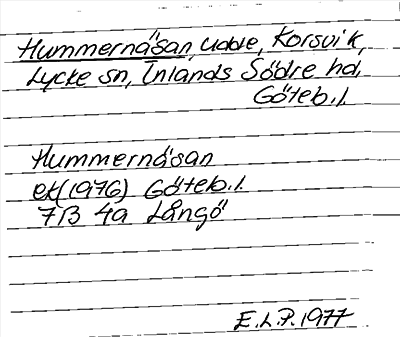 Hummernäsan, udde, Korsvik,
Lycke sn, Inlands Södre hd,
Göteb. l.
Hummernäsan
ek (1976) Göteb. l.
7B 4a Långö
E.L.P. 1977